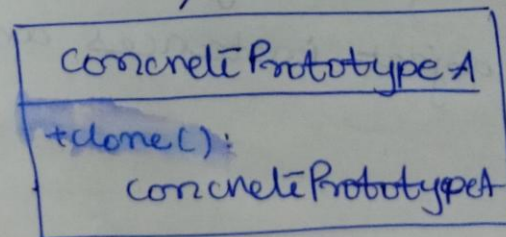 ConcretePrototypeA
+clone():
ConcretePrototypeA